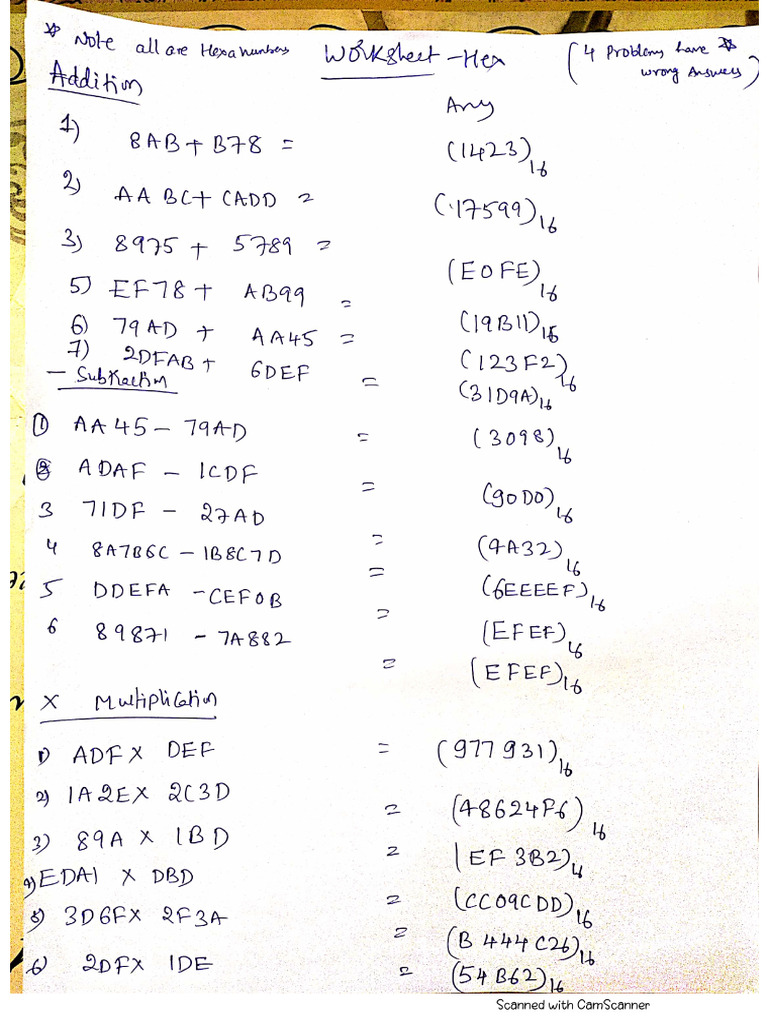 * Note all are Hexa numbers Worksheet - Hex (4 Problems have * wrong Answers)
Addition
Any
1) 8AB + B78 = (1423)16
2) AABC + CADD = (17599)16
3) 8975 + 5789 = (E0FE)16
5) EF78 + AB99 = (19B11)16
6) 79AD + AA45 = (123F2)16
7) 2DFAB + 6DEF = (31D9A)16
- Subtraction
① AA45 - 79AD = (3098)16
② ADAF - 1CDF = (90D0)16
3 71DF - 27AD = (4A32)16
4 8A7B6C - 1B8C7D = (6EEEEF)16
5 DDEFA - CEF0B = (EFEF)16
6 89871 - 7A882 = (EFEF)16
X Multiplication
1) ADF X DEF = (977931)16
2) 1A2E X 2C3D = (48624F6)16
3) 89A X 1BD = (EF3B2)16
4) EDA1 X DBD = (CC09CDD)16
5) 3D6F X 2F3A = (B444C26)16
6) 2DF X 1DE = (54B62)16
Scanned with CamScanner